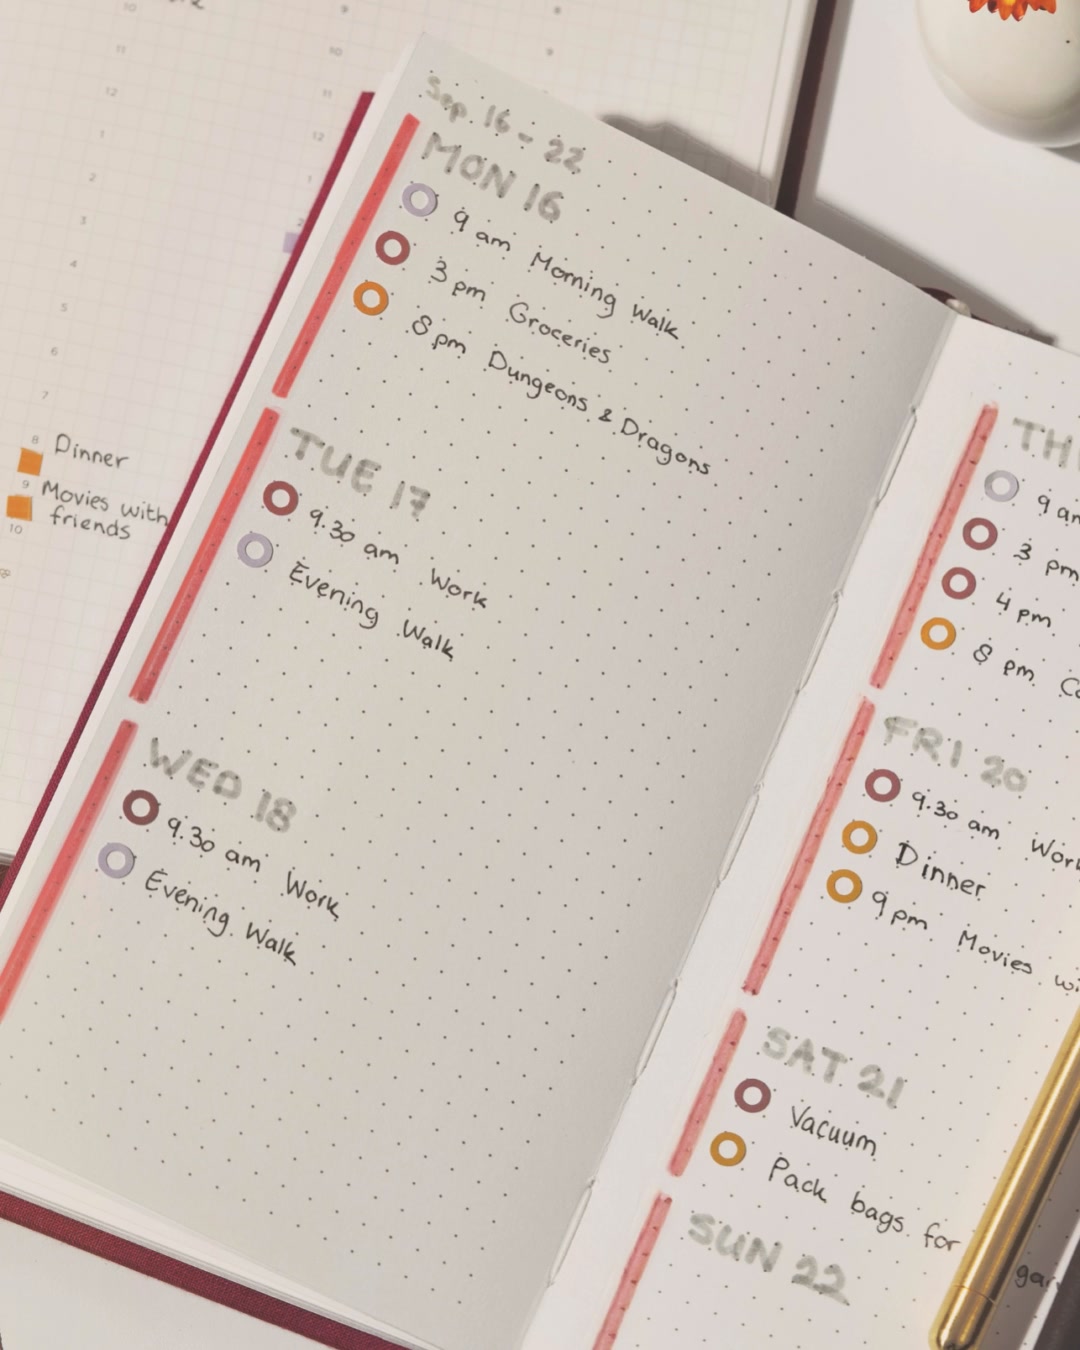 9
8
11
10
9
12
11
1
12
2
1
3
2
4
5
6
7
8 Dinner
9 Movies with
friends
10
Sep. 16 - 22
MON 16
9 am Morning Walk
3 pm Groceries
8 pm Dungeons & Dragons
TUE 17
9.30 am Work
Evening Walk
WED 18
9.30 am Work
Evening Walk
9 am
3 pm
4 pm
8 pm
FRI 20
9.30 am Work
Dinner
9 pm Movies
SAT 21
Vacuum
Pack bags for
SUN 22